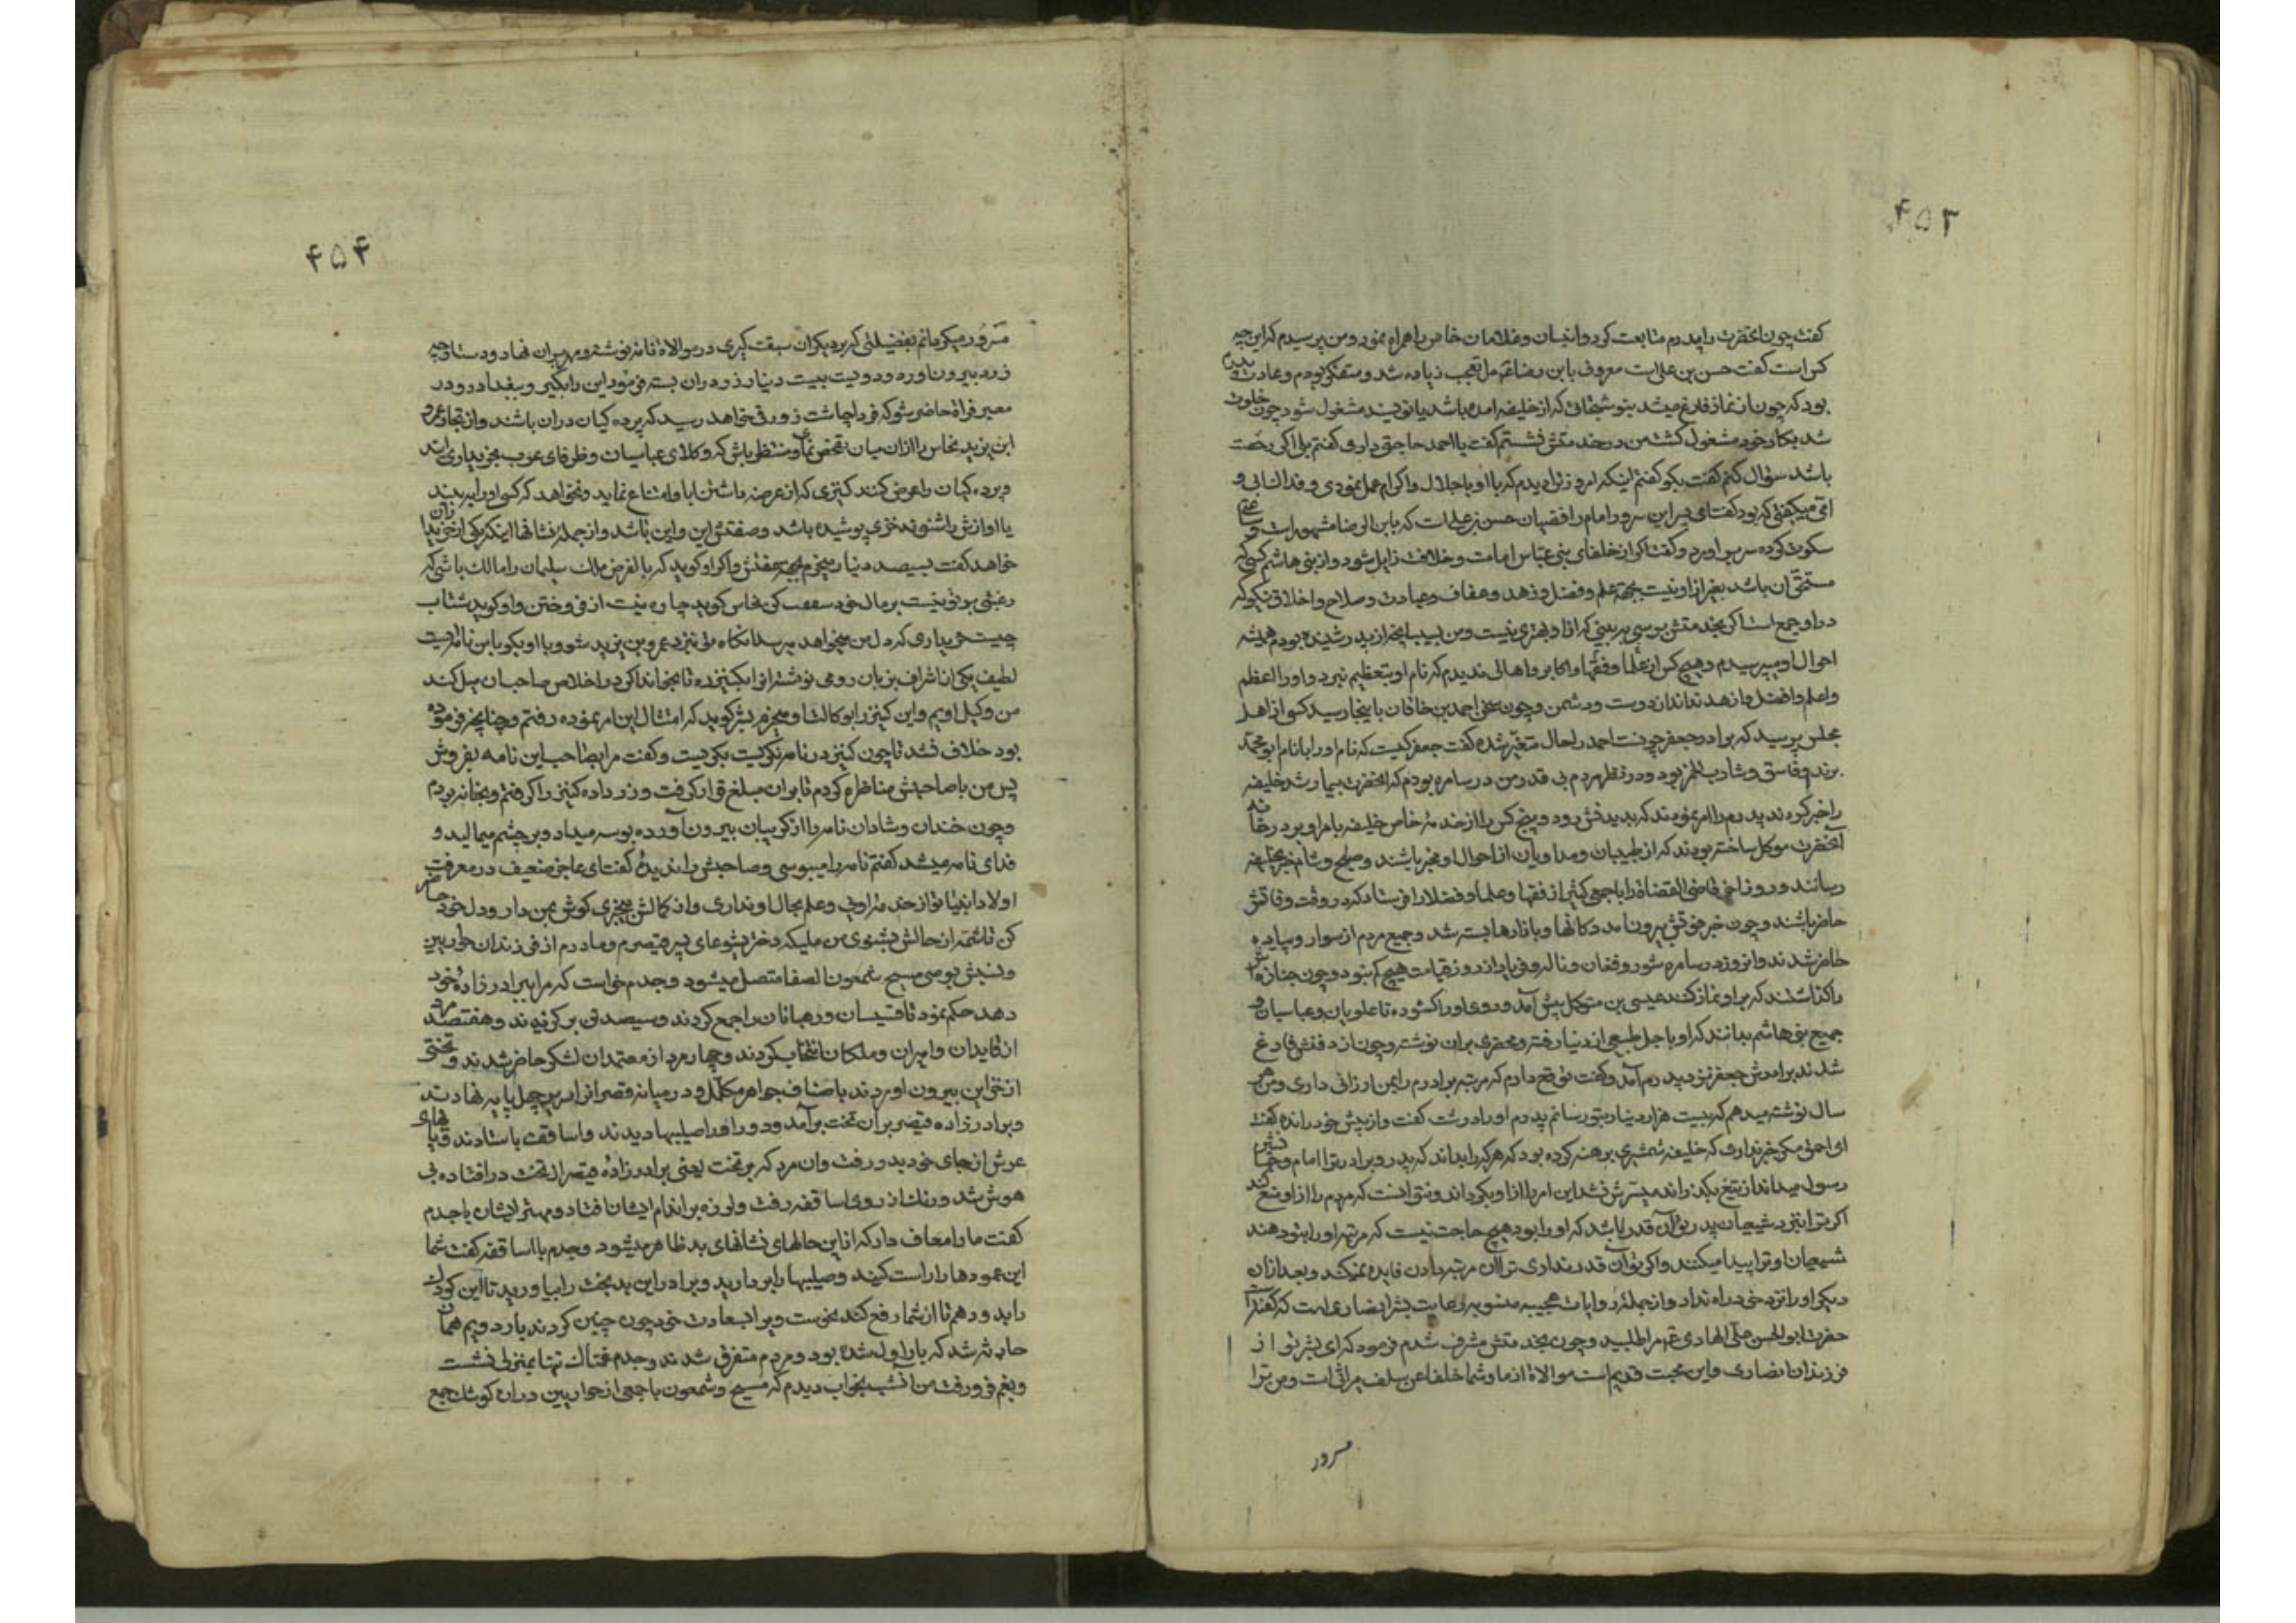 ۴۵۳
کفت چون انحضرت را پدرم متابعت کرد و اتباع و غلامان خاص را همراه نمود و من پرسیدم که این چه
کس است کفت حسن بن علی است معروف بابن رضا تعجب زیاده شد و متفکر بودم و عادت پدرم
بود که چون از نماز فارغ میشد بنوشتجاتی که از خلیفه امده باشد یا نویسند مشغول شود چون خلوت
شد بکار خود مشغول کشت من در خدمتش نشستم کفت یا احمد حاجتی داری کفتم بلی اکر رخصت
باشد سؤال کنم کفت بکو کفتم اینکه امروز دیدم که با او باجلال و اکرام عمل نمودی و فداک ابی و
امی میکفتی که بود کفت ای پسر این سرور امام رافضیان حسن بن علی است که بابن الرضا مشهور است و ساعتی
سکوت کرده سر براورد و کفت اکر از خلفای بنی عباس امامت و خلافت زایل شود از بنی هاشم کسی که
مستحق آن باشد بغیر از او نیست بجهة علم و فضل و زهد و عفاف و عبادت و صلاح و اخلاق نیکو که
در او جمع است اکر بخدمتش برسی پیر بینی که از او بهتری نیست و من بسبب انچه از پدر شنیده بودم همیشه
احوال او میپرسیدم و هیچ کس از علما و فقها و اکابر و اهالی ندیدم که نام او بتعظیم نبرد و او را اعظم
و اعلم و افضل و ازهد نداند از دوست و دشمن و چون سخن احمد بن خاقان باینجا رسید کسی از اهل
مجلس پرسید که برادر جعفر چونست احمد را حال متغیر شده کفت جعفر کیست که نام او را بانام ابو محمد
برند و فاسق و شارب الخمر بود و در نظر مردم بی قدر و من در سامره بودم که انحضرت بیمار شد خلیفه
را خبر کردند پدرم را امر نمودند که بدیدنش رود و پنج کس را از خدمه خاص خلیفه بامر او بر در خانه
آنحضرت موکل ساخته بودند که از طبیبان و مداویان از احوال او مخبر باشند و صبح و شام خبر بخلیفه
رسانند و روز اخر قاضی القضاة را با جمعی کثیر از فقها و علما و فضلا را فرستاد که در وقت وفاتش
حاضر باشند و چون خبر فوتش بیرون امد دکانها و بازارها بسته شد و جمیع مردم از سوار و پیاده
حاضر شدند و انروز در سامره شور و فغان و ناله و فریاد از روز قیامت هیچ کم نبود و چون جنازه اش
را کذاشتند که بر او نماز کنند عیسی بن متوکل پیش آمد و روی او را کشوده تا علویان و عباسیان و
جمیع بنی هاشم بدانند که او باجل طبیعی از دنیا رفته و محضری بران نوشته و چون از دفنش فارغ
شدند برادرش جعفر نزد پدرم آمد و کفت توقع دارم که مرتبه برادرم را بمن ارزانی داری و من هر
سال نوشته میدهم که بیست هزار دینار بتو رسانم پدرم او را درشت کفت و از پیش خود رانده کفت
ای احمق مکر خبر نداری که خلیفه شمشیری برهنه کرده بود که هرکه را بداند که پدر و برادر ترا امام و جانشین
رسول میداند از تیغ بکذراند میسرش نشد این امر را از او بکرداند و نتوانست که مردم را از او منع کند
اکر ترا نزد شیعیان پدر تو آن قدر باشد که او را بود هیچ حاجت نیست که مرتبه او را بتو دهند
شیعیان او ترا پیدا میکنند و اکر تو آن قدر نداری ترا آن مرتبه دادن فایده نمیکند و بعد از ان
دیکر او را نزد خود راه نداد و از جمله روایات عجیبه منسوبه روایت بشر انصاری است که کفت
حضرت ابو الحسن علی الهادی ع مرا طلبید و چون بخدمتش مشرف شدم فرمود که ای بشر تو از
فرزندان انصاری و این محبت قدیم است موالاة از ما و شما خلفا عن سلف میراث است و من ترا
مسرور
۴۵۴
مسرور میکردانم بفضیلتی که بر دیکران سبقت کیری در موالاة نامه نوشته و مهر بران نهاد و دستارچه
زرد بیرون اورده دویست بیست دینار زر دران بسته فرمود این را بکیر و ببغداد رو در
معبر فرات حاضر شو که فردا چاشت زورقی خواهد رسید که برده کیان دران باشند و از تجار عمرو
ابن یزید نخاس را از ان میان تفحص نمای و منتظر باش که وکلای عباسیان و ظرفای عرب بخریداری ایند
و برده کیان را عرض کنند کنیزی که از عرضه داشتن ابا و امتناع نماید و نخواهد که کسی او را ببیند
یا اوازش را شنود خزی پوشیده باشد و صفتش این و این باشد و از جمله نشانها اینکه یکی از خریداران
خواهد کفت بسیصد دینار میخرم بجهة عفتش و اکر او کوید که بالفرض ملک سلیمان را مالک باشی که
رغبتی بر تو نیست بر مال خود کن نخاس کوید چاره نیست از فروختن و او کوید شتاب
چیست خریداری که دل من میخواهد میرسد انکاه تو نزد عمرو بن یزید شو و با او بکو با من نامه ایست
لطیف یکی از اشراف بزبان رومی نوشته انرا بکنیز ده تا بخواند اکر در اخلاص صاحب ان میل کند
من وکیل اویم و این کنیز را بوکالت او میخرم بشر کوید که امتثال این امر نموده رفتم و چنانچه فرموده
بود خلاف نشد تا چون کنیز در نامه نکریست بکریست و کفت مرا بصاحب این نامه بفروش
پس من با صاحبش مناظره کردم تا بران مبلغ قرار کرفت و زر داده کنیز را کرفتم و بخانه بردم
و چون خندان و شادان نامه را از کریبان بیرون آورده بوسه میداد و بر چشم میمالید و
فدای نامه میشد کفتم نامه را میبوسی و صاحبش را ندیده کفت ای عاجز ضعیف در معرفت
اولاد انبیا تو از خدمه اویی و علم بحال او نداری و از کمالش بیخبری کوش بمن دار و دل خود حاضر
کن تا شمه از حالش بشنوی من ملیکه دختر یشوعای پسر قیصرم و مادرم از فرزندان حواریین
و نسبش بوصی مسیح شمعون الصفا متصل میشود و جدم خواست که مرا ببرادر زاده خود
دهد حکم نمود تا قسیسان و رهبانان را جمع کردند و سیصد تن برکزیدند و هفتصد مرد
از قایدان و امیران و ملکان انتخاب کردند و چهار مرد از معتمدان لشکر حاضر شدند و تختی
از خزاین بیرون اوردند باصناف جواهر مکلل و در میانه قصر انرا بر سر چهل پایه نهادند
و برادرزاده قیصر بران تخت برآمد و دور او را صلیبها دیدند و اساقفه باستادند قبای
عرش از جای خود بدر رفت و ان مرد که بر تخت یعنی برادرزاده قیصر از تخت در افتاده بی
هوش شد و رنک از روی اساقفه رفت و لرزه بر اندام ایشان افتاد و مهتر ایشان با جدم
کفت ما را معاف دار که از این حالهای نشانهای بد ظاهر میشود و جدم با اساقفه کفت شما
این عمودها را راست کنید و صلیبها را بردارید و برادر این بدبخت را بیاورید تا این کودک
را بدو دهم تا از شما رفع کند نحوست ویرا بسعادت خود چون چنین کردند بار دویم همان
حادثه شد که بار اول شده بود و مردم متفرق شدند و جدم غمناک تنها بمنزل نشست
و بغم فرو رفت من آنشب بخواب دیدم که مسیح و شمعون با جمعی از حواریین دران کوشک جمع